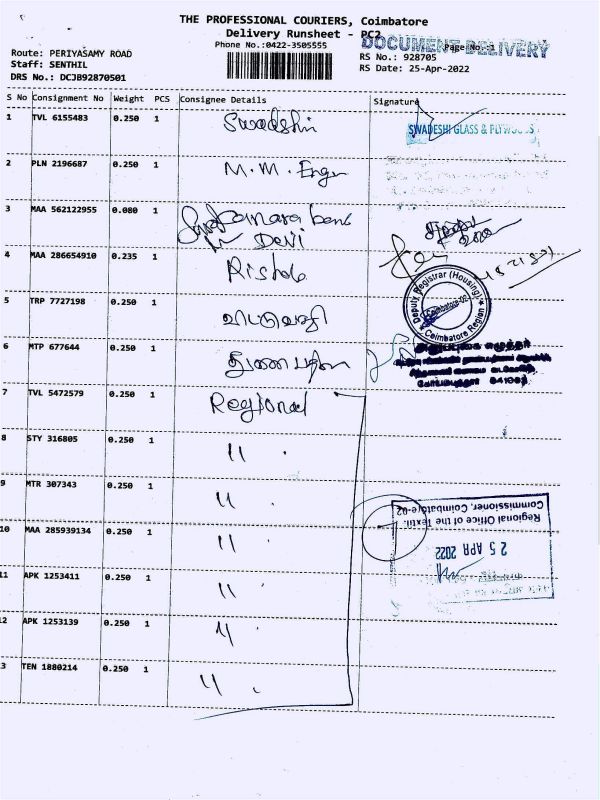 THE PROFESSIONAL COURIERS, Coimbatore
Delivery Runsheet - PC2
DOCUMENT DELIVERY
Phone No.:0422-3505555
Page No.:1
Route: PERIYASAMY ROAD
RS No.: 928705
Staff: SENTHIL
RS Date: 25-Apr-2022
DRS No.: DCJB92870501
S No Consignment No Weight PCS Consignee Details Signature
1 TVL 6155483 0.250 1 Swadshin
SWADESHI GLASS & PLYWOODS
2 PLN 2196687 0.250 1 M.M. Engr
3 MAA 562122955 0.080 1
Devi
4 MAA 286654910 0.235 1
Deputy Registrar (Housing)
Coimbatore-02
Coimbatore Region
5 TRP 7727198 0.250 1
6 MTP 677644 0.250 1
641002
7 TVL 5472579 0.250 1 Regional
8 STY 316805 0.250 1 〃
9 MTR 307343 0.250 1 〃
Regional Office of the Textile
Commissioner, Coimbatore-02
25 APR 2022
10 MAA 285939134 0.250 1 〃
11 APK 1253411 0.250 1 〃
12 APK 1253139 0.250 1 〃
13 TEN 1880214 0.250 1 〃